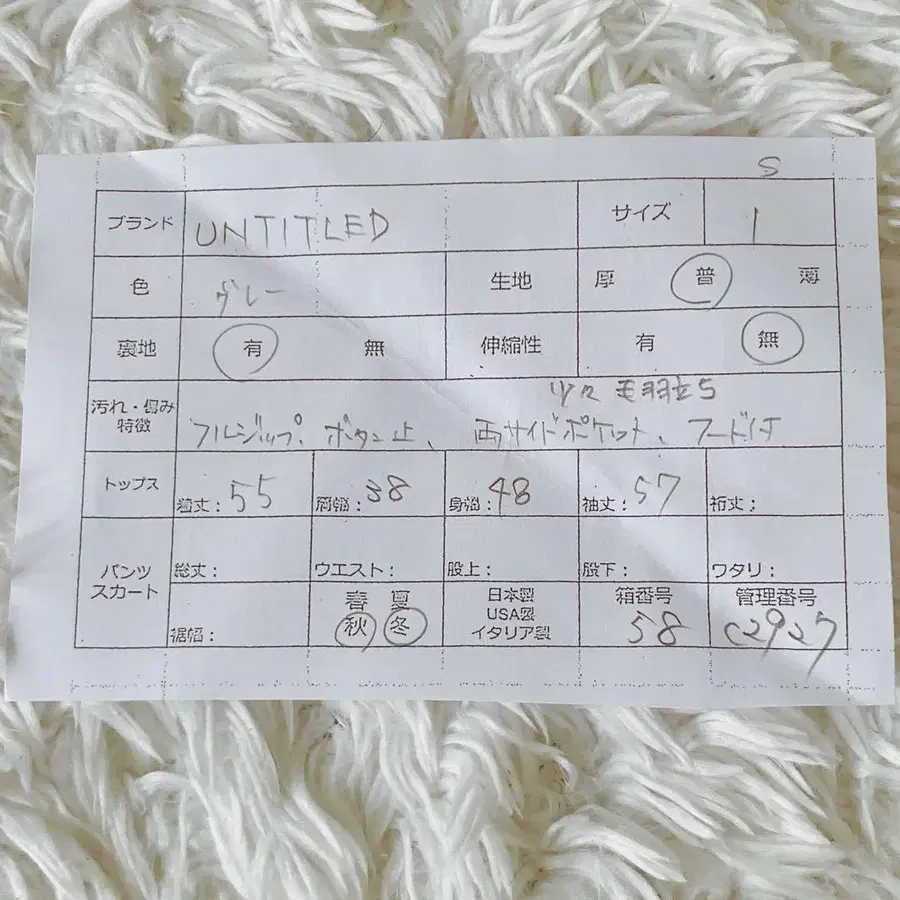 S
ブランド UNTITLED サイズ 1
色 グレー 生地 厚 普 薄
裏地 有 無 伸縮性 有 無
汚れ・傷み 少々 毛羽立ち
特徴 フルジップ、ボタン止、両サイドポケット、フード付
トップス 着丈：55 肩幅：38 身幅：48 袖丈：57 裄丈：
パンツ 総丈： ウエスト： 股上： 股下： ワタリ：
スカート
裾幅： 春 夏 日本製 箱番号 管理番号
秋 冬 USA製 58 C2927
イタリア製